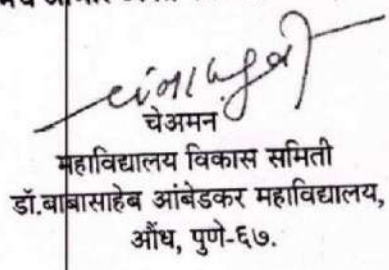 चेअमन
महाविद्यालय विकास समिती
डॉ.बाबासाहेब आंबेडकर महाविद्यालय,
औंध, पुणे-६७.